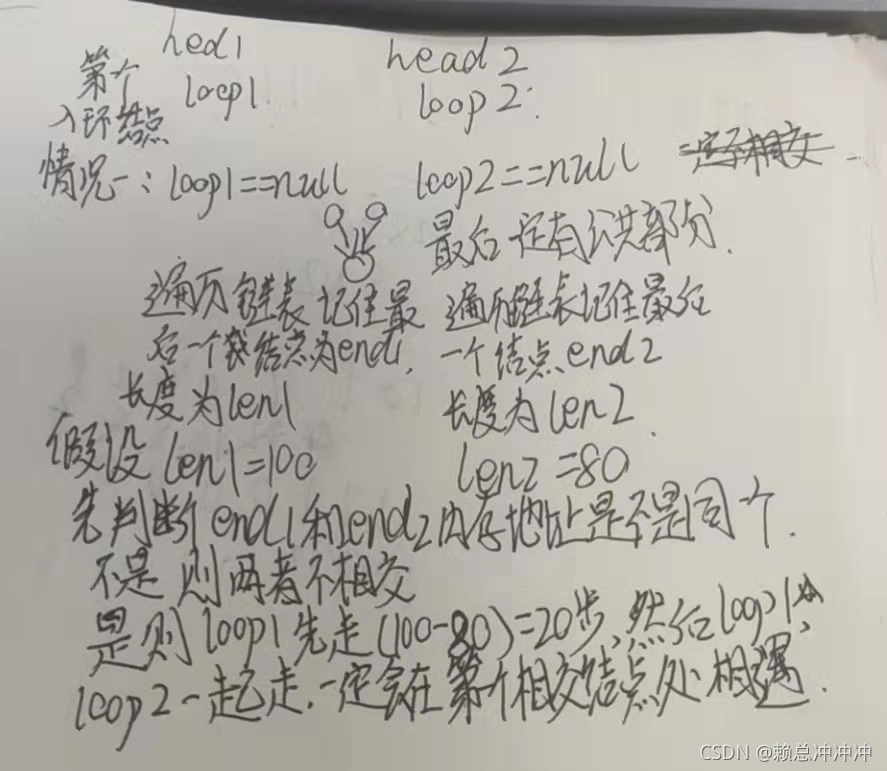 hed1 head2
第个 loop1 loop2.
入环结点
情况一:loop1==null loop2==null 一定不相交
最后一定有公共部分.
遍历链表记住最 遍历链表记住最后
后一个结点为end1, 一个结点end2
长度为len1 长度为len2.
假设len1=100 len2=80
先判断end1和end2内存地址是否是同一个.
不是则两者不相交
是则loop1先走(100-80)=20步,然后loop1
loop2一起走.一定会在第个相交结点处相遇.
CSDN @赖总冲冲冲